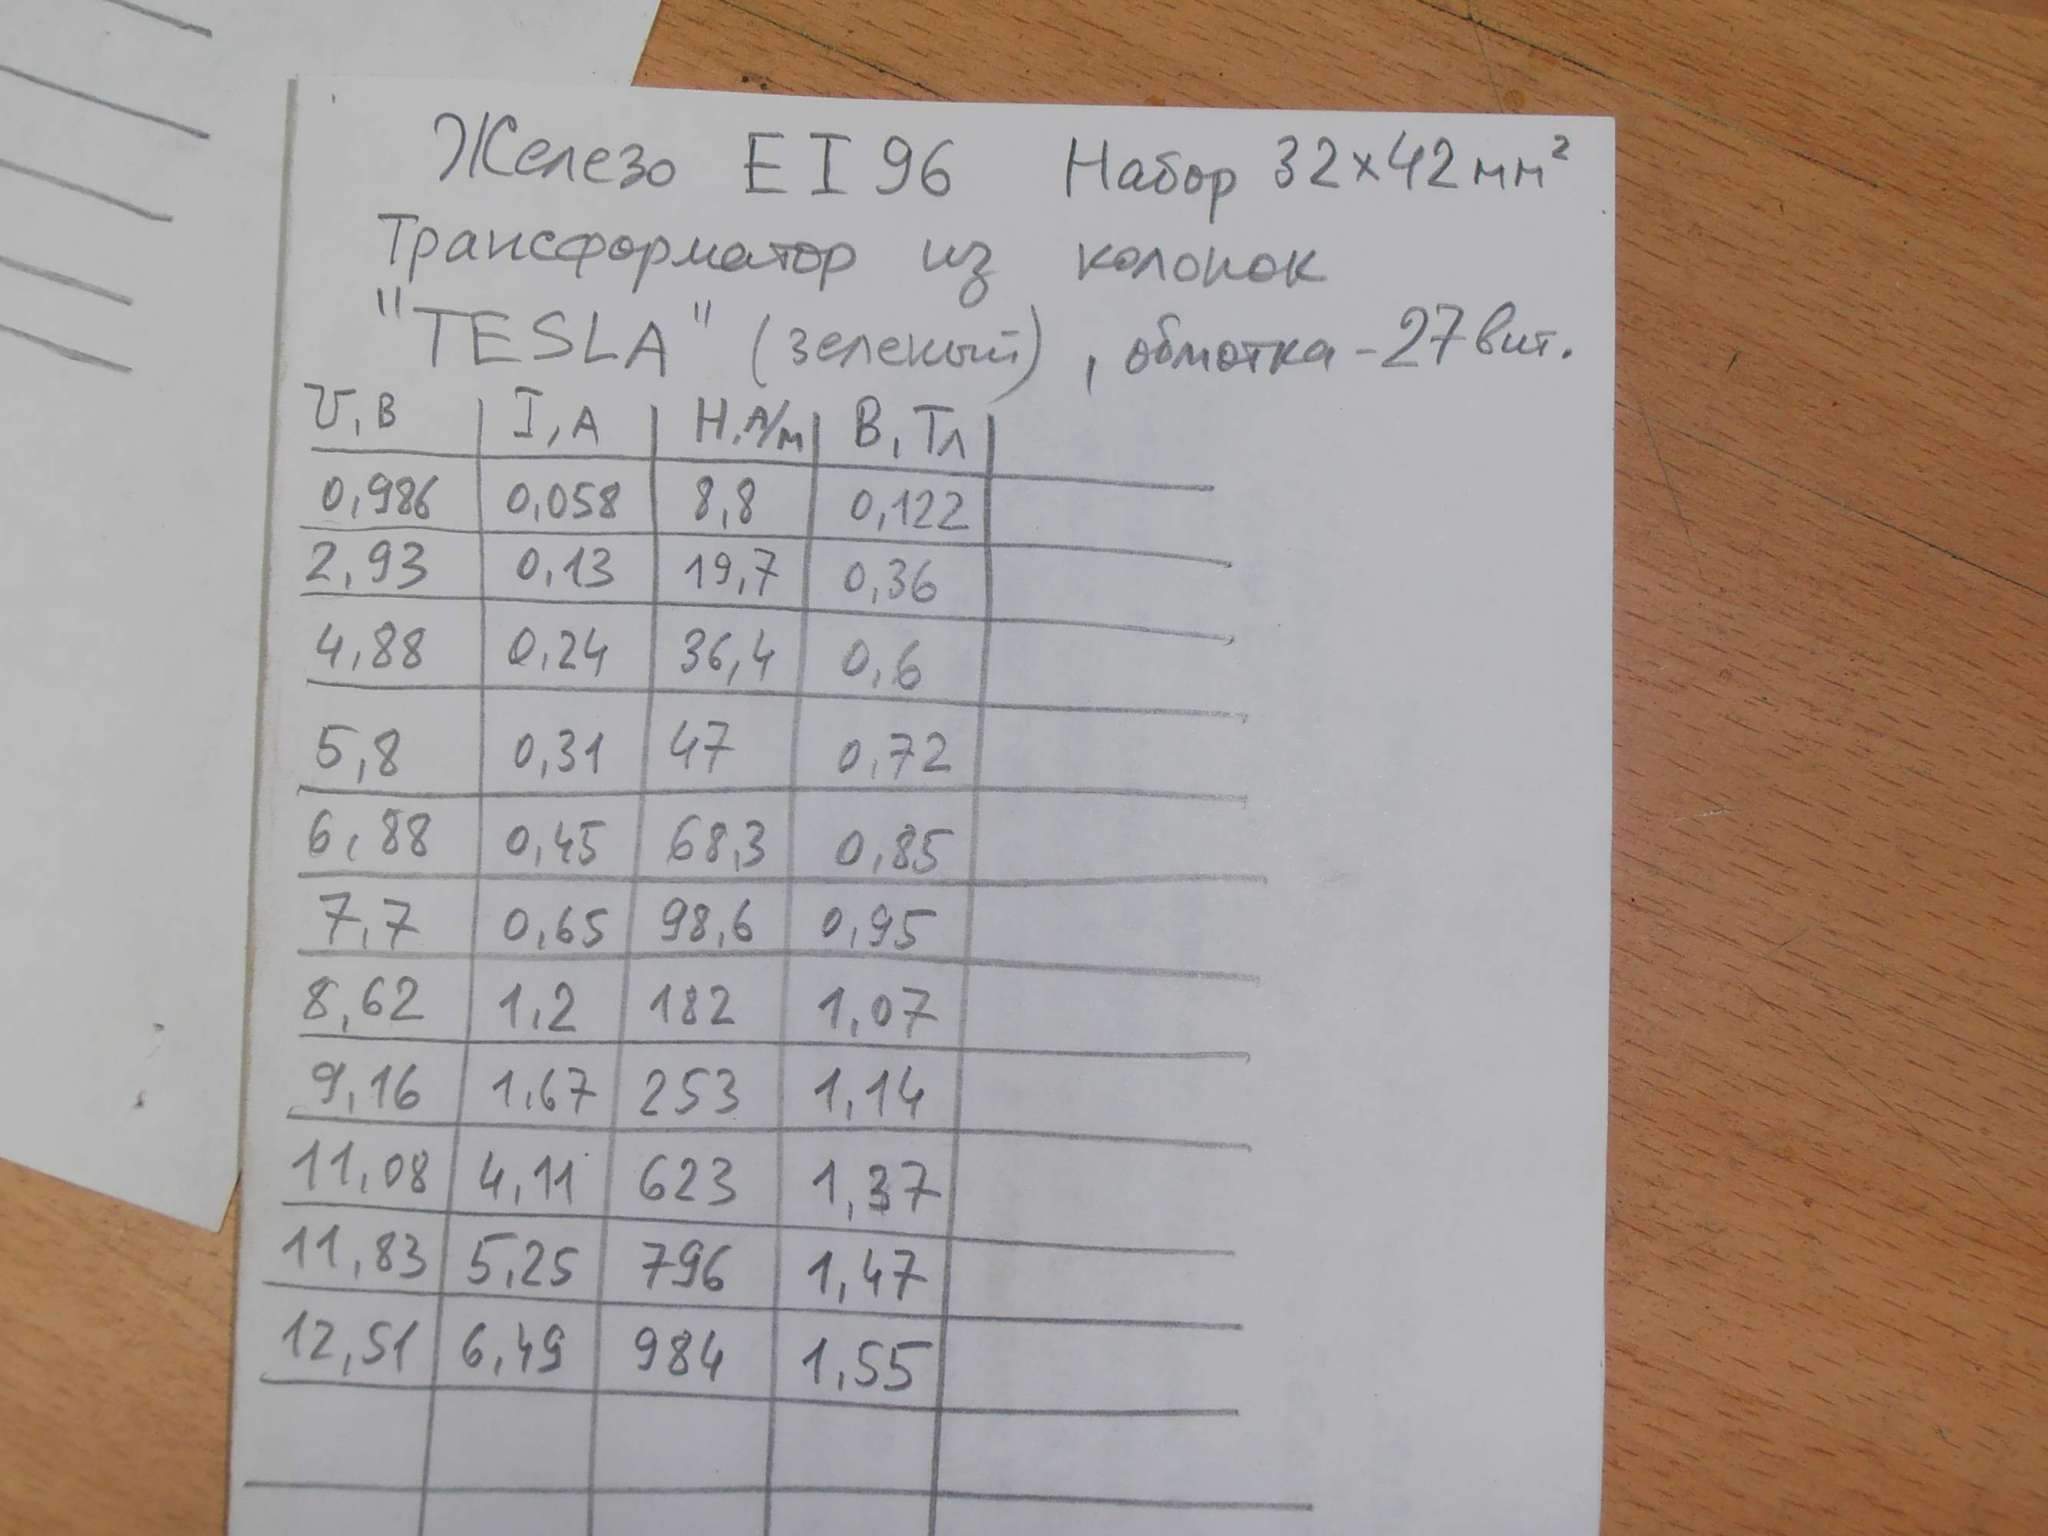 Железо EI96 Набор 32х42мм²
Трансформатор из колонок
"TESLA" (зеленый), обмотка - 27 вит.
U,В I,А Н,А/м В,Тл
0,986 0,058 8,8 0,122
2,93 0,13 19,7 0,36
4,88 0,24 36,4 0,6
5,8 0,31 47 0,72
6,88 0,45 68,3 0,85
7,7 0,65 98,6 0,95
8,62 1,2 182 1,07
9,16 1,67 253 1,14
11,08 4,11 623 1,37
11,83 5,25 796 1,47
12,51 6,49 984 1,55